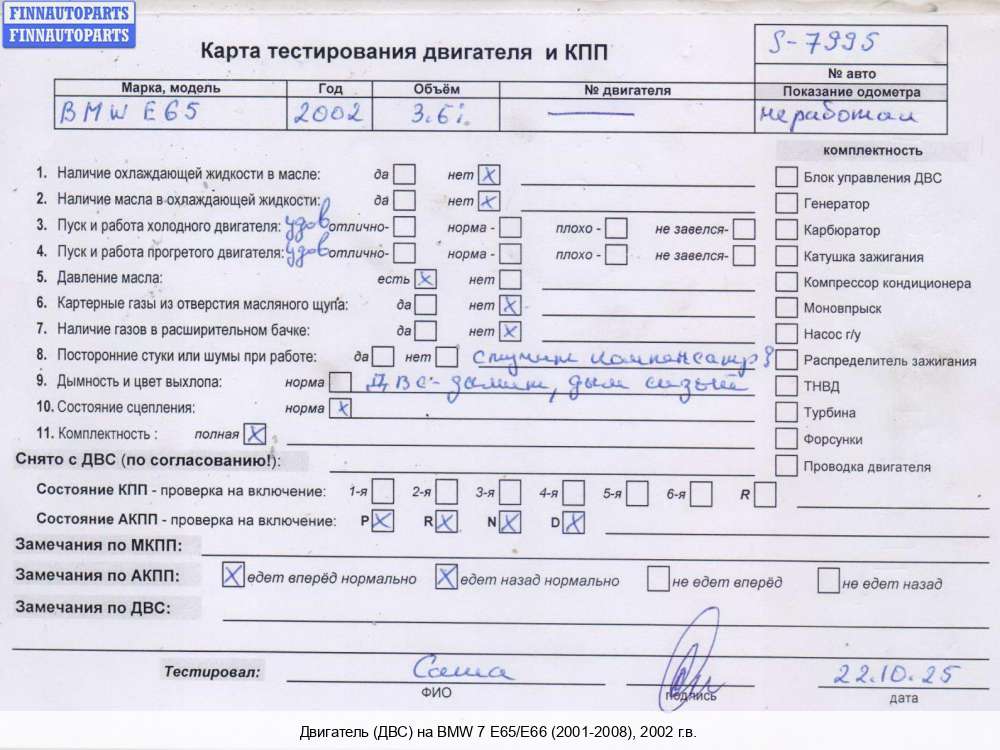 FINNAUTOPARTS
FINNAUTOPARTS
Карта тестирования двигателя и КПП
S-7995
№ авто
Марка, модель Год Объём № двигателя Показание одометра
BMW E65 2002 3.6i. — неработал
комплектность
1. Наличие охлаждающей жидкости в масле: да нет X Блок управления ДВС
2. Наличие масла в охлаждающей жидкости: да нет X Генератор
3. Пуск и работа холодного двигателя: удов отлично- норма - плохо - не завелся- Карбюратор
4. Пуск и работа прогретого двигателя: удов отлично- норма - плохо - не завелся- Катушка зажигания
5. Давление масла: есть X нет Компрессор кондиционера
6. Картерные газы из отверстия масляного щупа: да нет X Моновпрыск
7. Наличие газов в расширительном бачке: да нет X Насос г/у
8. Посторонние стуки или шумы при работе: да нет стучит компенсатр Распределитель зажигания
9. Дымность и цвет выхлопа: норма ДВС-дымит, дым сизый ТНВД
10. Состояние сцепления: норма X Турбина
11. Комплектность : полная X Форсунки
Снято с ДВС (по согласованию!): Проводка двигателя
Состояние КПП - проверка на включение: 1-я 2-я 3-я 4-я 5-я 6-я R
Состояние АКПП - проверка на включение: P X R X N X D X
Замечания по МКПП:
Замечания по АКПП: X едет вперёд нормально X едет назад нормально не едет вперёд не едет назад
Замечания по ДВС:
Тестировал: Саша 22.10.25
ФИО подпись дата
Двигатель (ДВС) на BMW 7 E65/E66 (2001-2008), 2002 г.в.